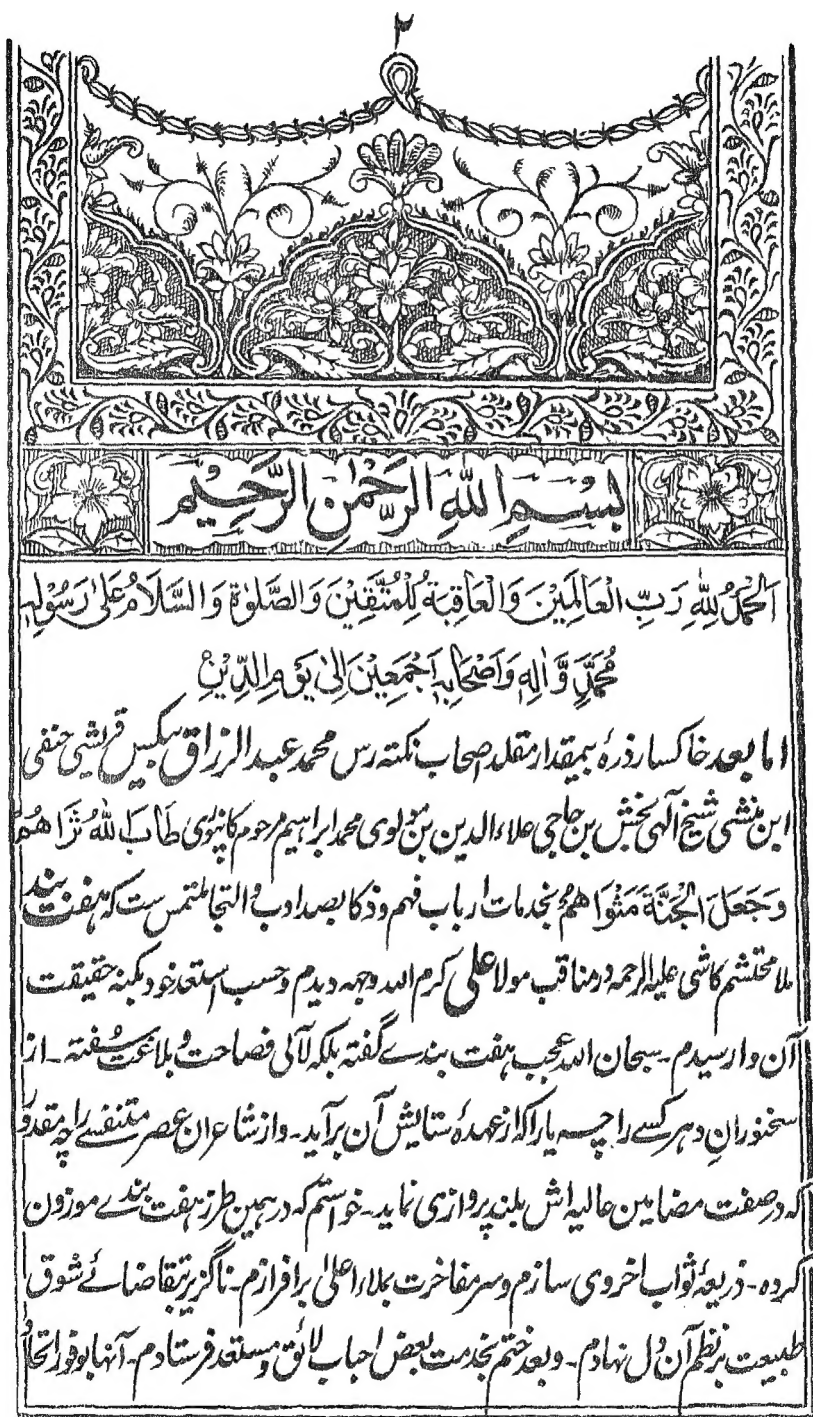 ۲
بِسْمِ اللهِ الرَّحْمٰنِ الرَّحِيْمِ
اَلْحَمْدُ لِلّٰهِ رَبِّ الْعَالَمِيْنَ وَالْعَاقِبَةُ لِلْمُتَّقِيْنَ وَالصَّلٰوةُ وَالسَّلَامُ عَلٰى رَسُوْلِهٖ
مُحَمَّدٍ وَّاٰلِهٖ وَاَصْحَابِهٖ اَجْمَعِيْنَ اِلٰى يَوْمِ الدِّيْنِ
اما بعد خاکسار ذرهٔ بیمقدار مقلد اصحاب نکته رس محمد عبد الرزاق بیکس قریشی حنفی
ابن منشی شیخ آلهی بخش بن حاجی علاء الدین بن مولوی محمد ابراهیم مرحوم کانپوری طَابَ اللهُ ثَرَاهُمْ
وَجَعَلَ الْجَنَّةَ مَثْوَاهُمْ بخدمات ارباب فهم و ذکا بصد ادب و التجا ملتمس ست که هفت بند
ملا محتشم کاشی علیه الرحمه در مناقب مولا علی کرم الله وجهه دیدم و حسب استعد خود بکنه حقیقت
آن وارسیدم ۔ سبحان الله عجب هفت بندے گفته بلکه لآلی فصاحت و بلاغت سُفته ۔ از
سخنورانِ دهر کسے را چه یارا که از عهدهٔ ستایش آن برآید ۔ و از شاعران عصر متنفسے را چه مقدور
که در صفت مضامین عالیه اش بلند پروازی نماید ۔ خواستم که در همین طرز هفت بندے موزون
کرده ۔ ذریعهٔ ثواب اخروی سازم و سر مفاخرت بملاء اعلیٰ برافرازم ۔ ناگزیر بتقاضائے شوق
طبیعت بر نظم آن دل نهادم ۔ و بعد ختم بخدمت بعض احباب لائق و مستعد فرستادم ۔ آنها بوفور اتحاد